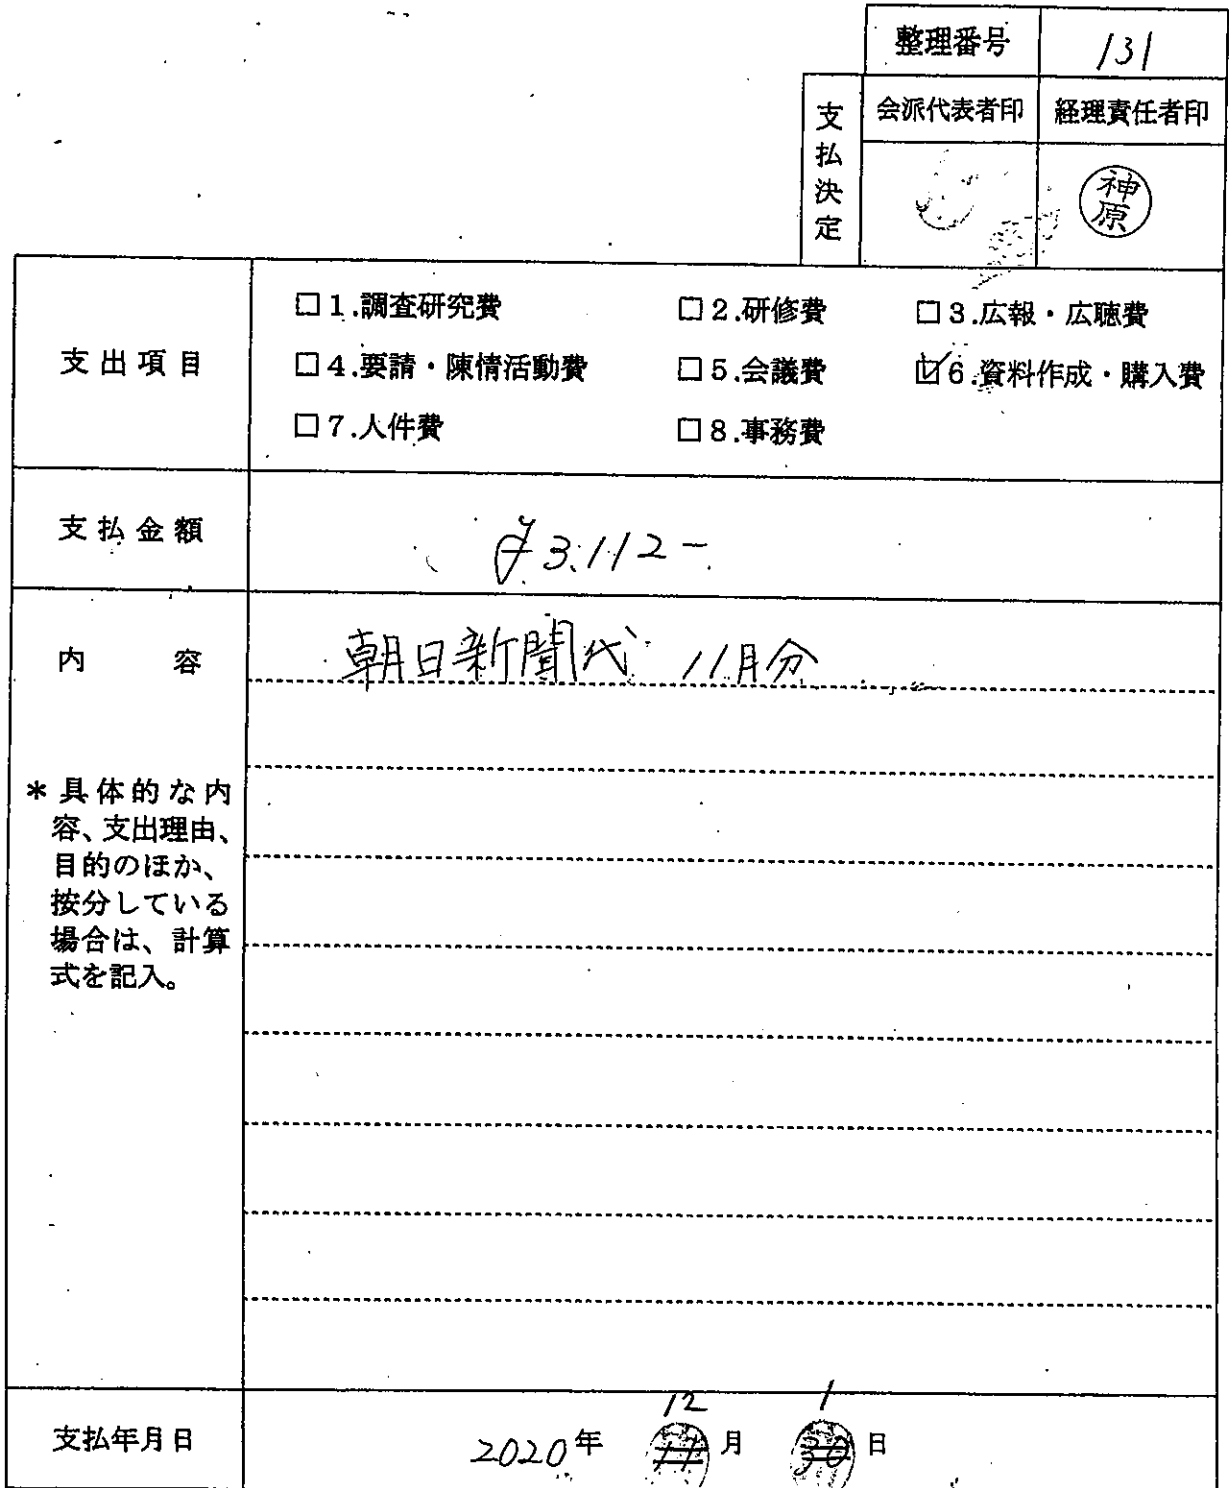 整理番号 131
支払決定
会派代表者印 経理責任者印
神原
支出項目
□1.調査研究費 □2.研修費 □3.広報・広聴費
□4.要請・陳情活動費 □5.会議費 ☑6.資料作成・購入費
□7.人件費 □8.事務費
支払金額 ¥3,112-
内容 朝日新聞代 11月分
*具体的な内
容、支出理由、
目的のほか、
按分している
場合は、計算
式を記入。
12 1
支払年月日 2020年 11月 30日